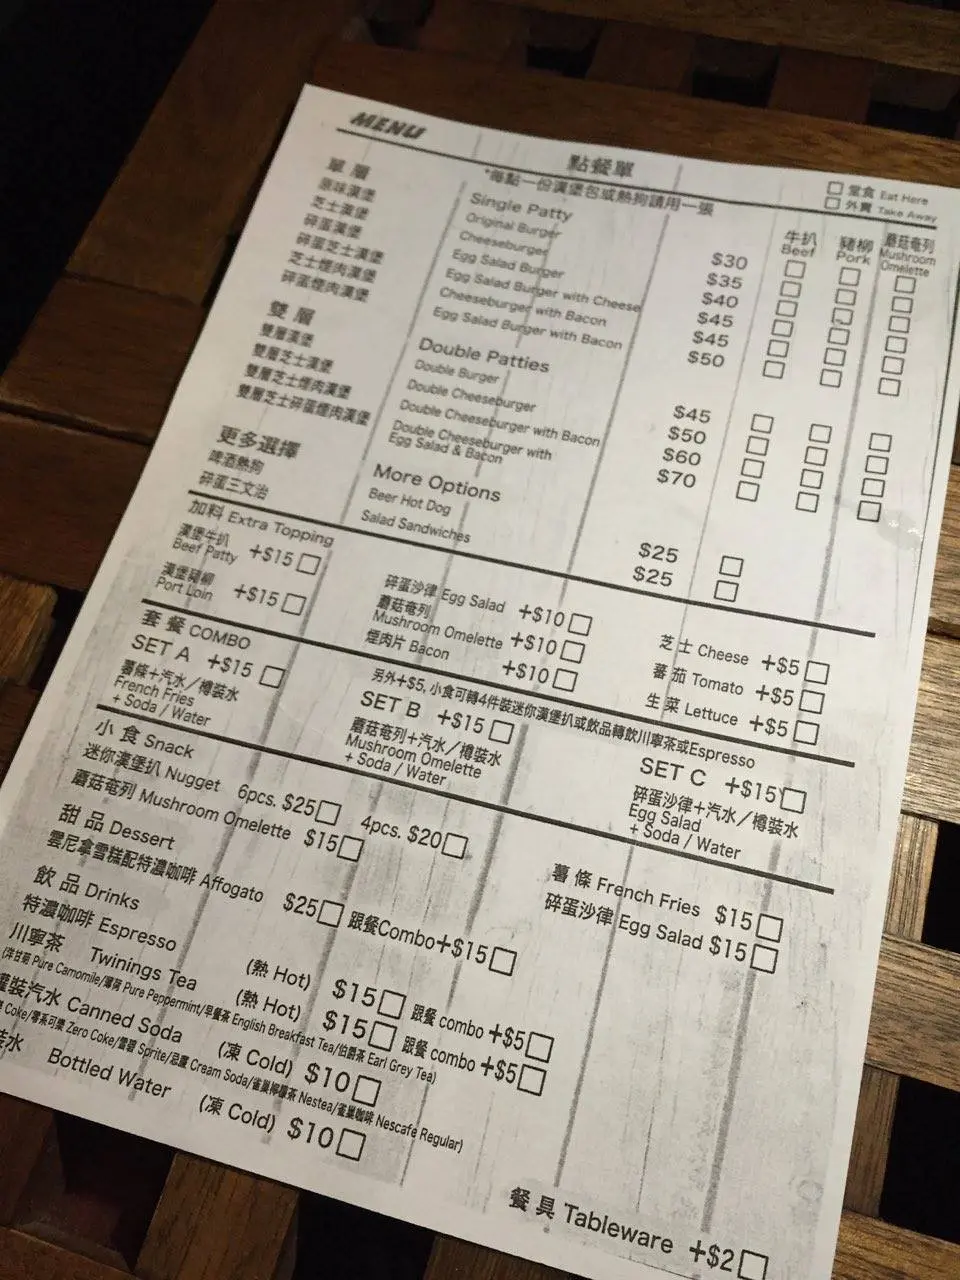 MENU
點餐單
*每點一份漢堡包或熱狗請用一張
堂食 Eat Here
外賣 Take Away
牛扒 Beef
豬柳 Pork
蘑菇奄列 Mushroom Omelette
單層 Single Patty
原味漢堡 Original Burger $30
芝士漢堡 Cheeseburger $35
碎蛋漢堡 Egg Salad Burger $40
碎蛋芝士漢堡 Egg Salad Burger with Cheese $45
芝士煙肉漢堡 Cheeseburger with Bacon $45
碎蛋煙肉漢堡 Egg Salad Burger with Bacon $50
雙層 Double Patties
雙層漢堡 Double Burger $45
雙層芝士漢堡 Double Cheeseburger $50
雙層芝士煙肉漢堡 Double Cheeseburger with Bacon $60
雙層芝士碎蛋煙肉漢堡 Double Cheeseburger with Egg Salad & Bacon $70
更多選擇 More Options
啤酒熱狗 Beer Hot Dog $25
碎蛋三文治 Salad Sandwiches $25
加料 Extra Topping
漢堡牛扒 Beef Patty +$15
碎蛋沙律 Egg Salad +$10
芝士 Cheese +$5
漢堡豬柳 Port Loin +$15
蘑菇奄列 Mushroom Omelette +$10
蕃茄 Tomato +$5
煙肉片 Bacon +$10
生菜 Lettuce +$5
套餐 COMBO
另外+$5, 小食可轉4件裝迷你漢堡扒或飲品轉飲川寧茶或Espresso
SET A +$15
薯條+汽水／樽裝水
French Fries
+ Soda / Water
SET B +$15
蘑菇奄列+汽水／樽裝水
Mushroom Omelette
+ Soda / Water
SET C +$15
碎蛋沙律+汽水／樽裝水
Egg Salad
+ Soda / Water
小食 Snack
迷你漢堡扒 Nugget 6pcs. $25 4pcs. $20
薯條 French Fries $15
蘑菇奄列 Mushroom Omelette $15
碎蛋沙律 Egg Salad $15
甜品 Dessert
雲尼拿雪糕配特濃咖啡 Affogato $25 跟餐Combo+$15
飲品 Drinks
特濃咖啡 Espresso (熱 Hot) $15 跟餐 combo +$5
川寧茶 Twinings Tea (熱 Hot) $15 跟餐 combo +$5
(洋甘菊 Pure Camomile/薄荷 Pure Peppermint/早餐茶 English Breakfast Tea/伯爵茶 Earl Grey Tea)
罐裝汽水 Canned Soda (凍 Cold) $10
Coke/零系可樂 Zero Coke/雪碧 Sprite/忌廉 Cream Soda/雀巢檸檬茶 Nestea/雀巢咖啡 Nescafe Regular)
裝水 Bottled Water (凍 Cold) $10
餐具 Tableware +$2